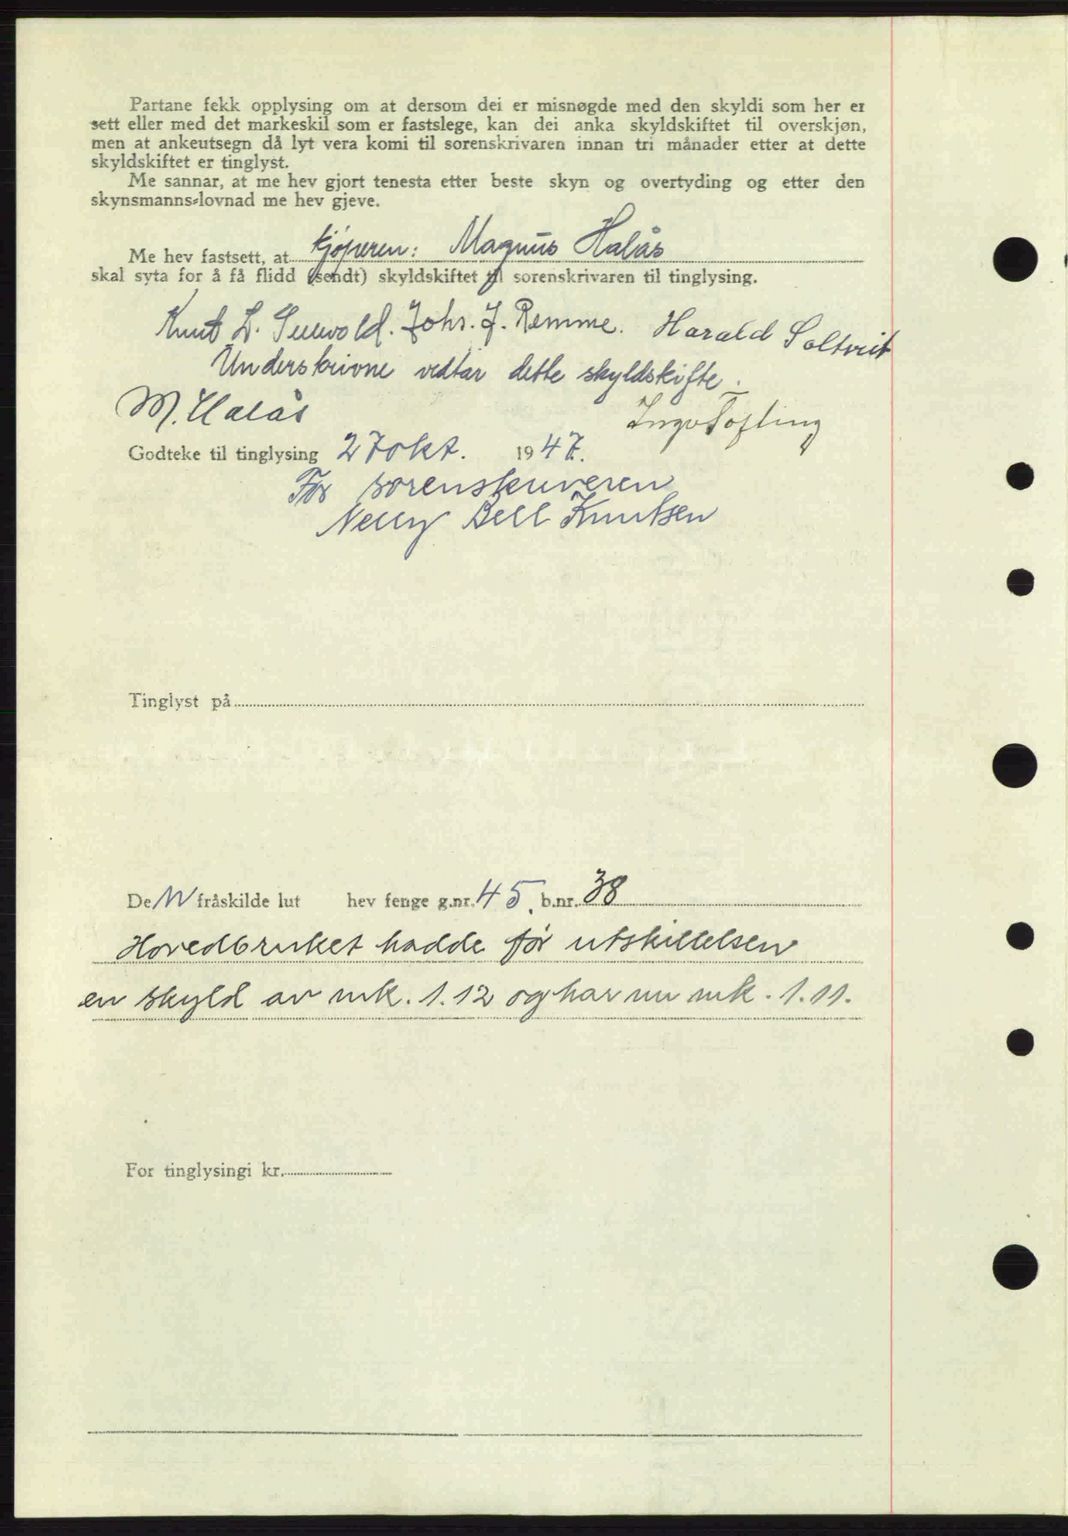 Partane fekk opplysing om at dersom dei er misnøgde med den skyldi som her er
sett eller med det markeskil som er fastslege, kan dei anka skyldskiftet til overskjøn,
men at ankeutsegn då lyt vera komi til sorenskrivaren innan tri månader etter at dette
skyldskiftet er tinglyst.
Me sannar, at me hev gjort tenesta etter beste skyn og overtyding og etter den
skynsmanns-lovnad me hev gjeve.
Me hev fastsett, at kjøperen: Magnus Halås
skal syta for å få flidd (sendt) skyldskiftet til sorenskrivaren til tinglysing.
Knut L. Johs. J. Remme. Harald Soltveit
Underskrivne vedtar dette skyldskifte.
M. Halås
Godteke til tinglysing 27 okt. 1947.
For sorenskriveren
Nelly Bell Knutsen
Tinglyst på
De N fråskilde lut hev fenge g.nr. 45, b.nr. 38
Hovedbruket hadde før utskillelsen
en skyld av mk. 1.12 og har nu mk. 1.11.
For tinglysingi kr.